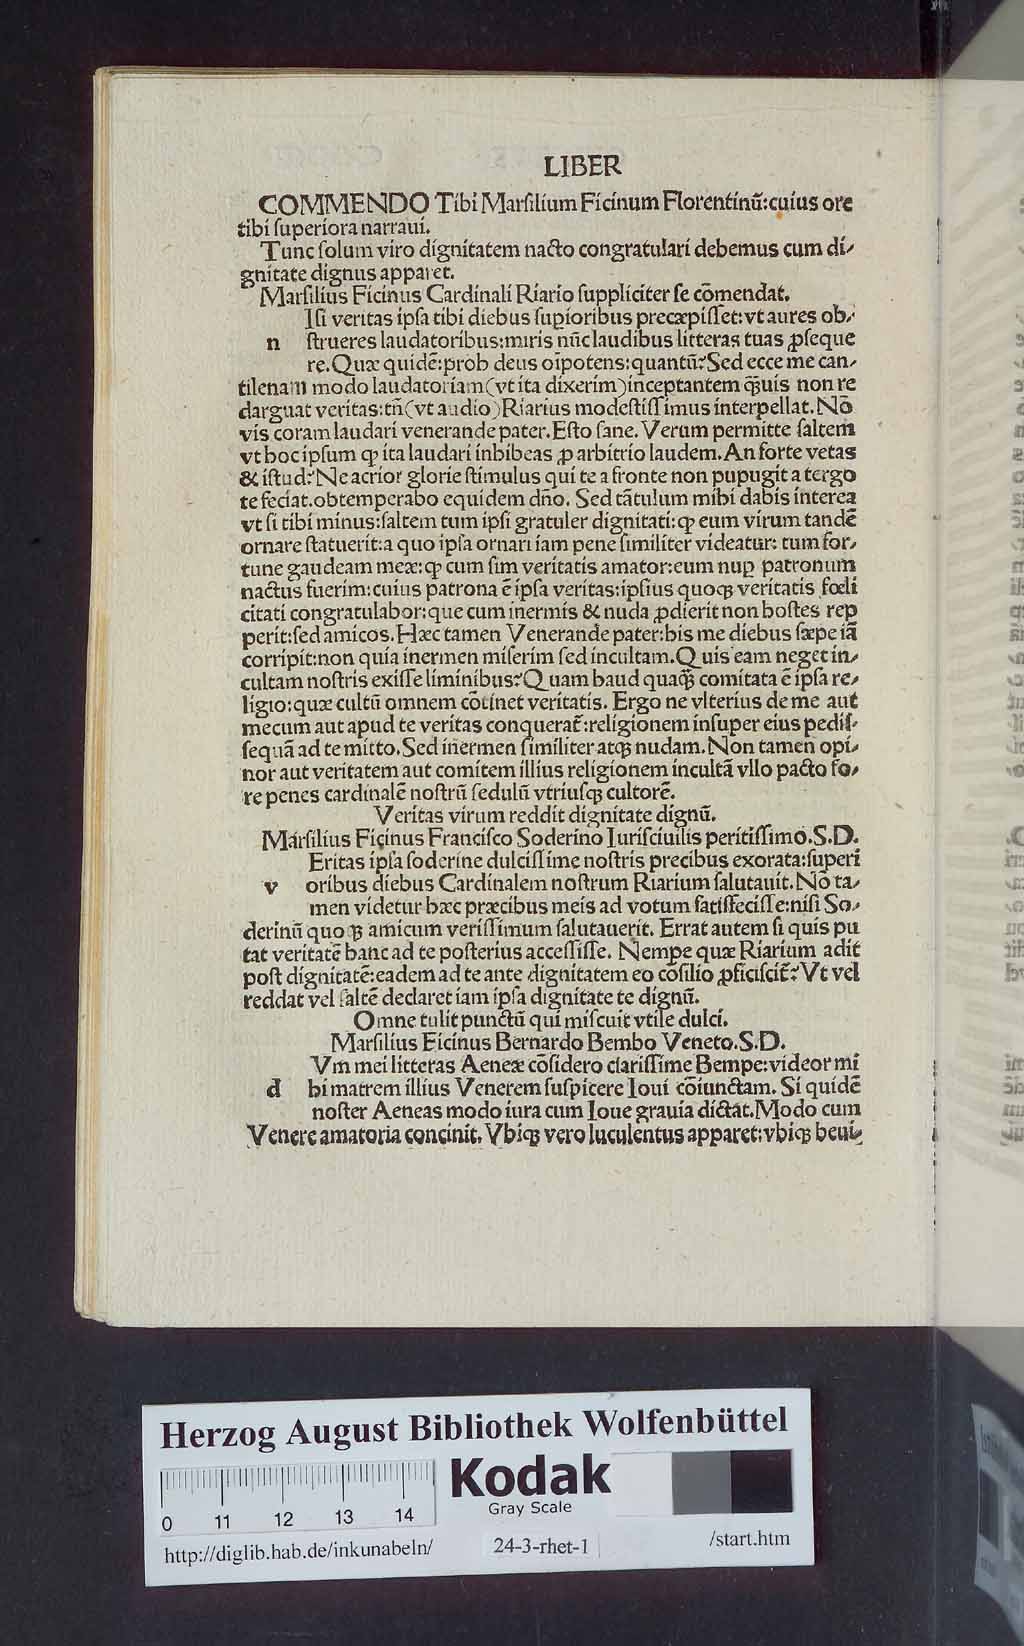 LIBER
COMMENDO Tibi Marſilium Ficinum Florentinū:cuius ore
tibi ſuperiora narraui.
Tunc ſolum viro dignitatem nacto congratulari debemus cum di-
gnitate dignus apparet.
Marſilius Ficinus Cardinali Riario ſuppliciter ſe cōmendat.
Iſi veritas ipſa tibi diebus ſuꝑioribus precæpiſſet:vt aures ob-
n ſtrueres laudatoribus:miris nūc laudibus litteras tuas ꝓſeque
re.Quæ quidē:prob deus oīpotens:quantū?Sed ecce me can-
tilenam modo laudatoriam(vt ita dixerim)inceptantem qᷓuis non re
darguat veritas:tn̄(vt audio)Riarius modeſtiſſimus interpellat.Nō
vis coram laudari venerande pater.Eſto ſane.Verum permitte ſaltem
vt hoc ipſum ꝙ ita laudari inhibeas ꝓ arbitrio laudem.An forte vetas
& iſtud?Ne acrior glorie ſtimulus qui te a fronte non pupugit a tergo
te feciat.obtemperabo equidem dn̄o. Sed tātulum mihi dabis interea
vt ſi tibi minus:ſaltem tum ipſi gratuler dignitati:ꝙ eum virum tandē
ornare ſtatuerit:a quo ipſa ornari iam pene ſimiliter videatur: tum for-
tune gaudeam meæ:ꝙ cum ſim veritatis amator:eum nuꝑ patronum
nactus fuerim:cuius patrona ē ipſa veritas:ipſius quoqꝫ veritatis fœli
citati congratulabor:que cum inermis & nuda ꝓdierit non hoſtes rep
perit:ſed amicos.Hæc tamen Venerande pater:his me diebus ſæpe iā
corripit:non quia inermen miſerim ſed incultam.Quis eam neget in-
cultam noſtris exiſſe liminibus?Quam haud quaqᷓ comitata ē ipſa re-
ligio:quæ cultū omnem cōtinet veritatis. Ergo ne vlterius de me aut
mecum aut apud te veritas conquerat̄:religionem inſuper eius pediſ-
ſequā ad te mitto.Sed inermen ſimiliter atqꝫ nudam.Non tamen opi-
nor aut veritatem aut comitem illius religionem incultā vllo pacto fo-
re penes cardinalē noſtrū ſedulū vtriuſqꝫ cultorē.
Veritas virum reddit dignitate dignū.
Marſilius Ficinus Franciſco Soderino Iuriſciuilis peritiſſimo.S.D.
Eritas ipſa ſoderine dulciſſime noſtris precibus exorata:ſuperi
v oribus diebus Cardinalem noſtrum Riarium ſalutauit.Nō ta-
men videtur hæc præcibus meis ad votum ſatiſfeciſſe:niſi So-
derinū quo qꝫ amicum veriſſimum ſalutauerit. Errat autem ſi quis pu
tat veritatē hanc ad te poſterius acceſſiſſe. Nempe quæ Riarium adit
poſt dignitatē:eadem ad te ante dignitatem eo cōſilio ꝓficiſcit̄?Vt vel
reddat vel ſaltē declaret iam ipſa dignitate te dignū.
Omne tulit punctū qui miſcuit vtile dulci.
Marſilius Ficinus Bernardo Bembo Veneto.S.D.
Vm mei litteras Aeneæ cōſidero clariſſime Bempe:videor mi
d hi matrem illius Venerem ſuſpicere Ioui cōiunctam. Si quidē
noſter Aeneas modo iura cum Ioue grauia dictat.Modo cum
Venere amatoria concinit.Vbiqꝫ vero luculentus apparet:vbiqꝫ beni-
Herzog August Bibliothek Wolfenbüttel
Kodak
Gray Scale
0 11 12 13 14
http://diglib.hab.de/inkunabeln/ 24-3-rhet-1 /start.htm